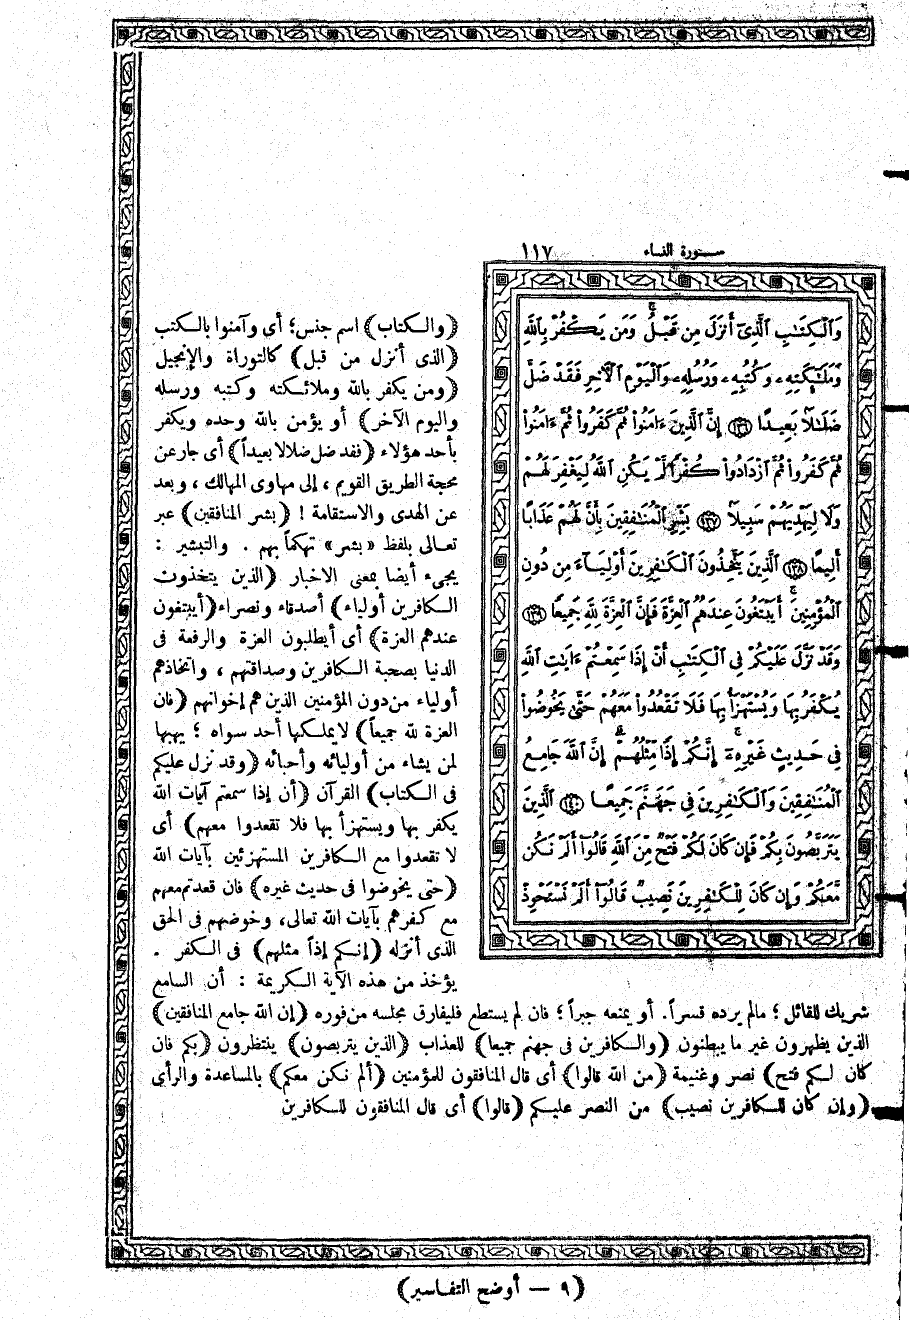 سورة النساء ١١٧
وَٱلْكِتَٰبِ ٱلَّذِىٓ أَنزَلَ مِن قَبْلُ ۚ وَمَن يَكْفُرْ بِٱللَّهِ
وَمَلَٰٓئِكَتِهِۦ وَكُتُبِهِۦ وَرُسُلِهِۦ وَٱلْيَوْمِ ٱلْأٓخِرِ فَقَدْ ضَلَّ
ضَلَٰلًۢا بَعِيدًا ١٣٦ إِنَّ ٱلَّذِينَ ءَامَنُوا۟ ثُمَّ كَفَرُوا۟ ثُمَّ ءَامَنُوا۟
ثُمَّ كَفَرُوا۟ ثُمَّ ٱزْدَادُوا۟ كُفْرًا لَّمْ يَكُنِ ٱللَّهُ لِيَغْفِرَ لَهُمْ
وَلَا لِيَهْدِيَهُمْ سَبِيلًۢا ١٣٧ بَشِّرِ ٱلْمُنَٰفِقِينَ بِأَنَّ لَهُمْ عَذَابًا
أَلِيمًا ١٣٨ ٱلَّذِينَ يَتَّخِذُونَ ٱلْكَٰفِرِينَ أَوْلِيَآءَ مِن دُونِ
ٱلْمُؤْمِنِينَ ۚ أَيَبْتَغُونَ عِندَهُمُ ٱلْعِزَّةَ فَإِنَّ ٱلْعِزَّةَ لِلَّهِ جَمِيعًا ١٣٩
وَقَدْ نَزَّلَ عَلَيْكُمْ فِى ٱلْكِتَٰبِ أَنْ إِذَا سَمِعْتُمْ ءَايَٰتِ ٱللَّهِ
يُكْفَرُ بِهَا وَيُسْتَهْزَأُ بِهَا فَلَا تَقْعُدُوا۟ مَعَهُمْ حَتَّىٰ يَخُوضُوا۟
فِى حَدِيثٍ غَيْرِهِۦٓ ۚ إِنَّكُمْ إِذًا مِّثْلُهُمْ ۗ إِنَّ ٱللَّهَ جَامِعُ
ٱلْمُنَٰفِقِينَ وَٱلْكَٰفِرِينَ فِى جَهَنَّمَ جَمِيعًا ١٤٠ ٱلَّذِينَ
يَتَرَبَّصُونَ بِكُمْ فَإِن كَانَ لَكُمْ فَتْحٌ مِّنَ ٱللَّهِ قَالُوٓا۟ أَلَمْ نَكُن
مَّعَكُمْ وَإِن كَانَ لِلْكَٰفِرِينَ نَصِيبٌ قَالُوٓا۟ أَلَمْ نَسْتَحْوِذْ
(والكتاب) اسم جنس؛ أى وآمنوا بالكتب
(الذى أنزل من قبل) كالتوراة والإنجيل
(ومن يكفر بالله وملائكته وكتبه ورسله
واليوم الآخر) أو يؤمن بالله وحده ويكفر
بأحد هؤلاء (فقد ضل ضلالا بعيداً) أى جار عن
محجة الطريق القويم، إلى مهاوى المهالك، وبعد
عن الهدى والاستقامة! (بشر المنافقين) عبر
تعالى بلفظ «بشر» تهكماً بهم. والتبشير:
يجىء أيضا بمعنى الاخبار (الذين يتخذون
الكافرين أولياء) أصدقاء ونصراء (أيبتغون
عندهم العزة) أى أيطلبون العزة والرفعة فى
الدنيا بصحبة الكافرين وصداقتهم، واتخاذهم
أولياء من دون المؤمنين الذين هم إخوانهم (فان
العزة لله جميعاً) لا يملكها أحد سواه؛ يهبها
لمن يشاء من أوليائه وأحبائه (وقد نزل عليكم
فى الكتاب) القرآن (أن إذا سمعتم آيات الله
يكفر بها ويستهزأ بها فلا تقعدوا معهم) أى
لا تقعدوا مع الكافرين المستهزئين بآيات الله
(حتى يخوضوا فى حديث غيره) فان قعدتم معهم
مع كفرهم بآيات الله تعالى، وخوضهم فى الحق
الذى أنزله (إنكم إذاً مثلهم) فى الكفر.
يؤخذ من هذه الآية الكريمة: أن السامع
شريك للقائل؛ مالم يرده قسراً. أو يمنعه جبراً؛ فان لم يستطع فليفارق مجلسه من فوره (إن الله جامع المنافقين)
الذين يظهرون غير ما يبطنون (والكافرين فى جهنم جميعا) للعذاب (الذين يتربصون) ينتظرون (بكم فان
كان لكم فتح) نصر وغنيمة (من الله قالوا) أى قال المنافقون للمؤمنين (ألم نكن معكم) بالمساعدة والرأى
(وإن كان للكافرين نصيب) من النصر عليكم (قالوا) أى قال المنافقون للكافرين
(٩ — أوضح التفاسير)